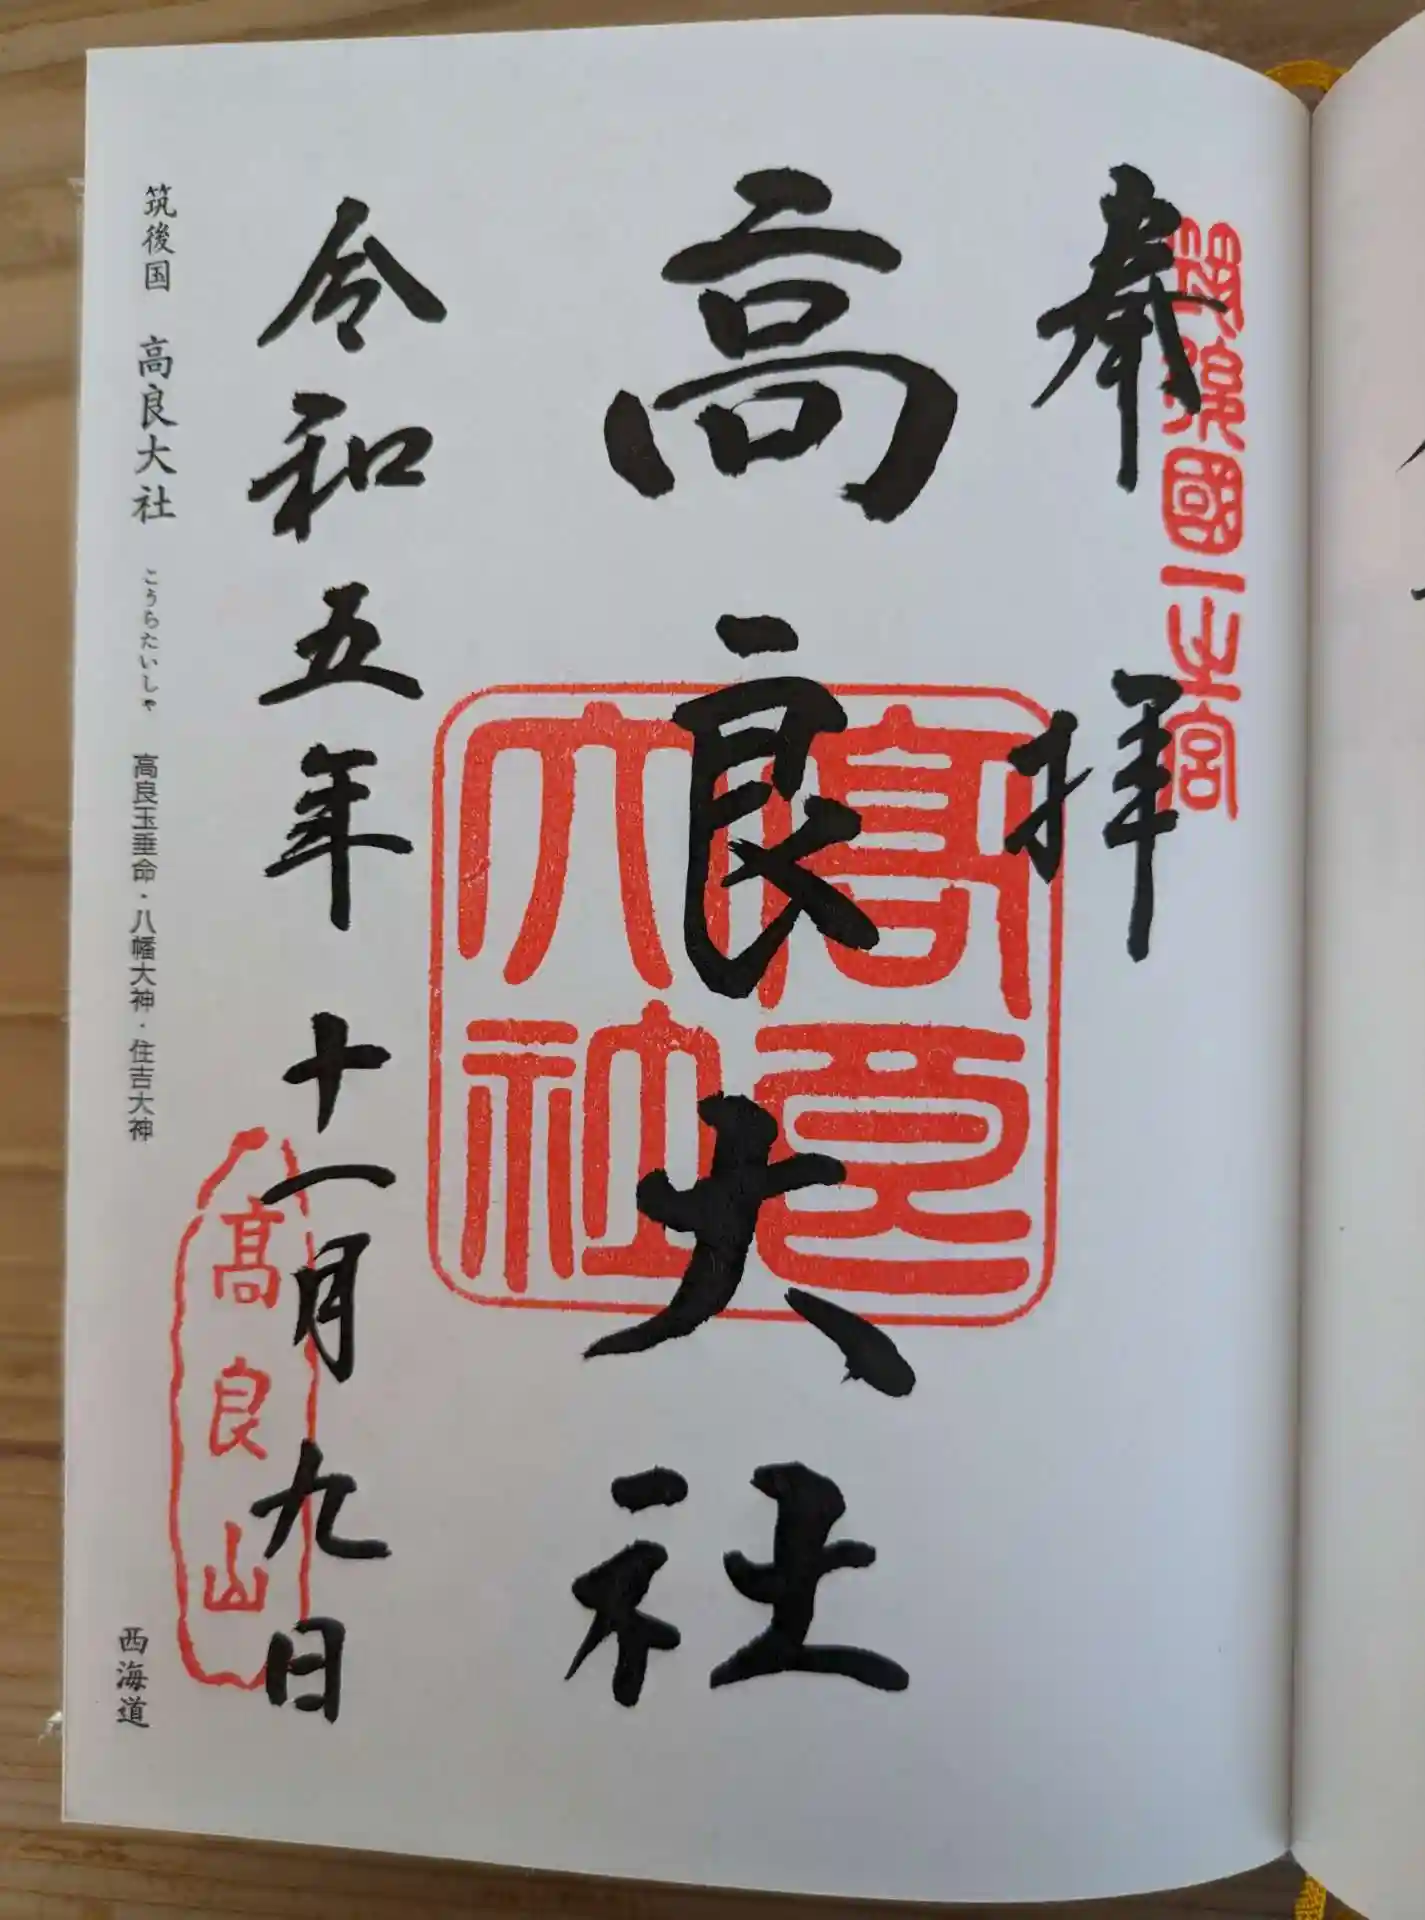 筑後國一之宮
奉拝
高良大社
高良
大社
令和五年十一月九日
高良山
筑後国　高良大社　こうらたいしゃ　高良玉垂命・八幡大神・住吉大神
西海道